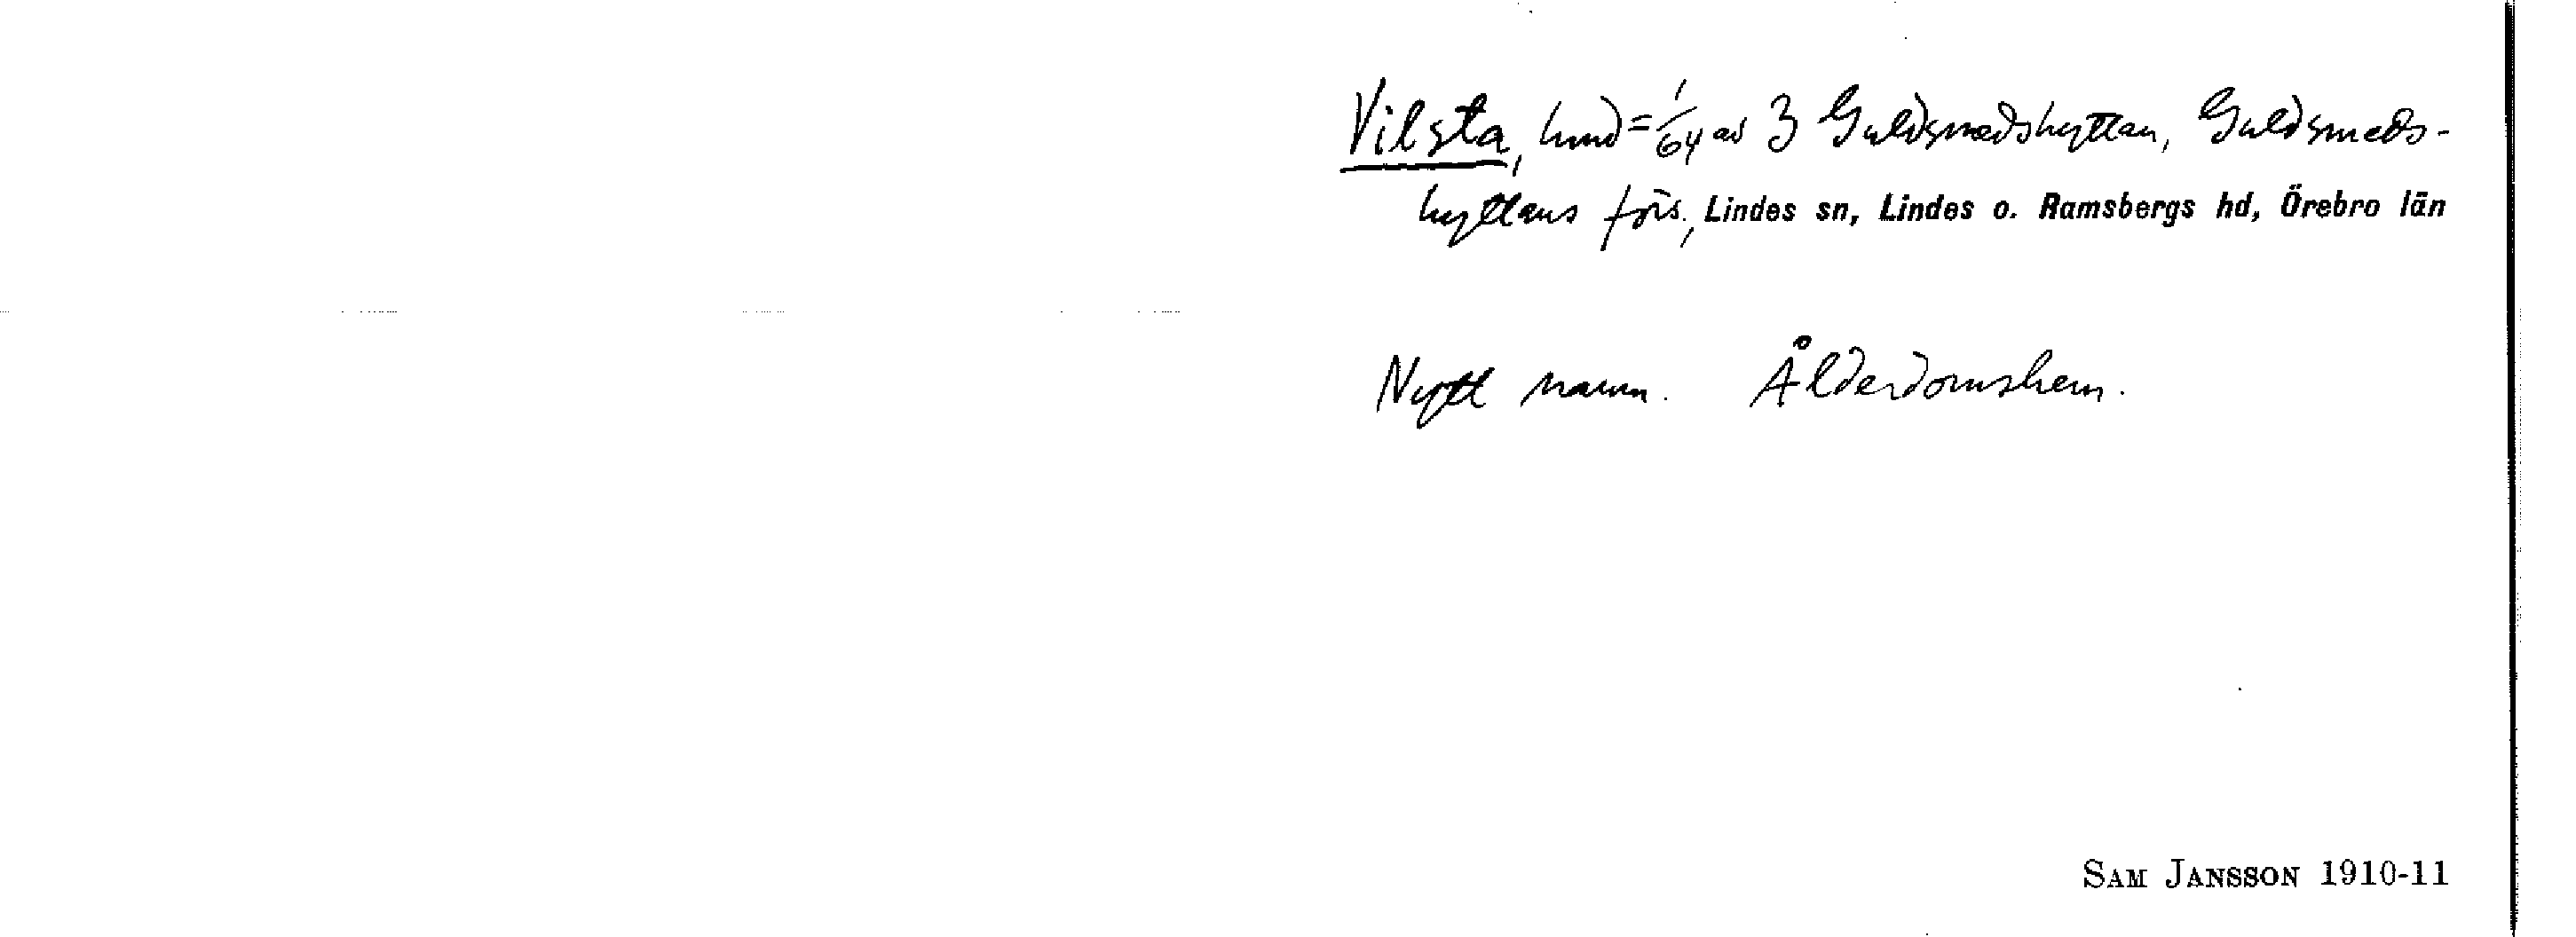 Vilsta, hmd = 1/64 av 3 Guldsmedshyttan, Guldsmeds-
hyttans förs., Lindes sn, Lindes o. Ramsbergs hd, Örebro län
Nytt namn. Ålderdomshem.
SAM JANSSON 1910-11